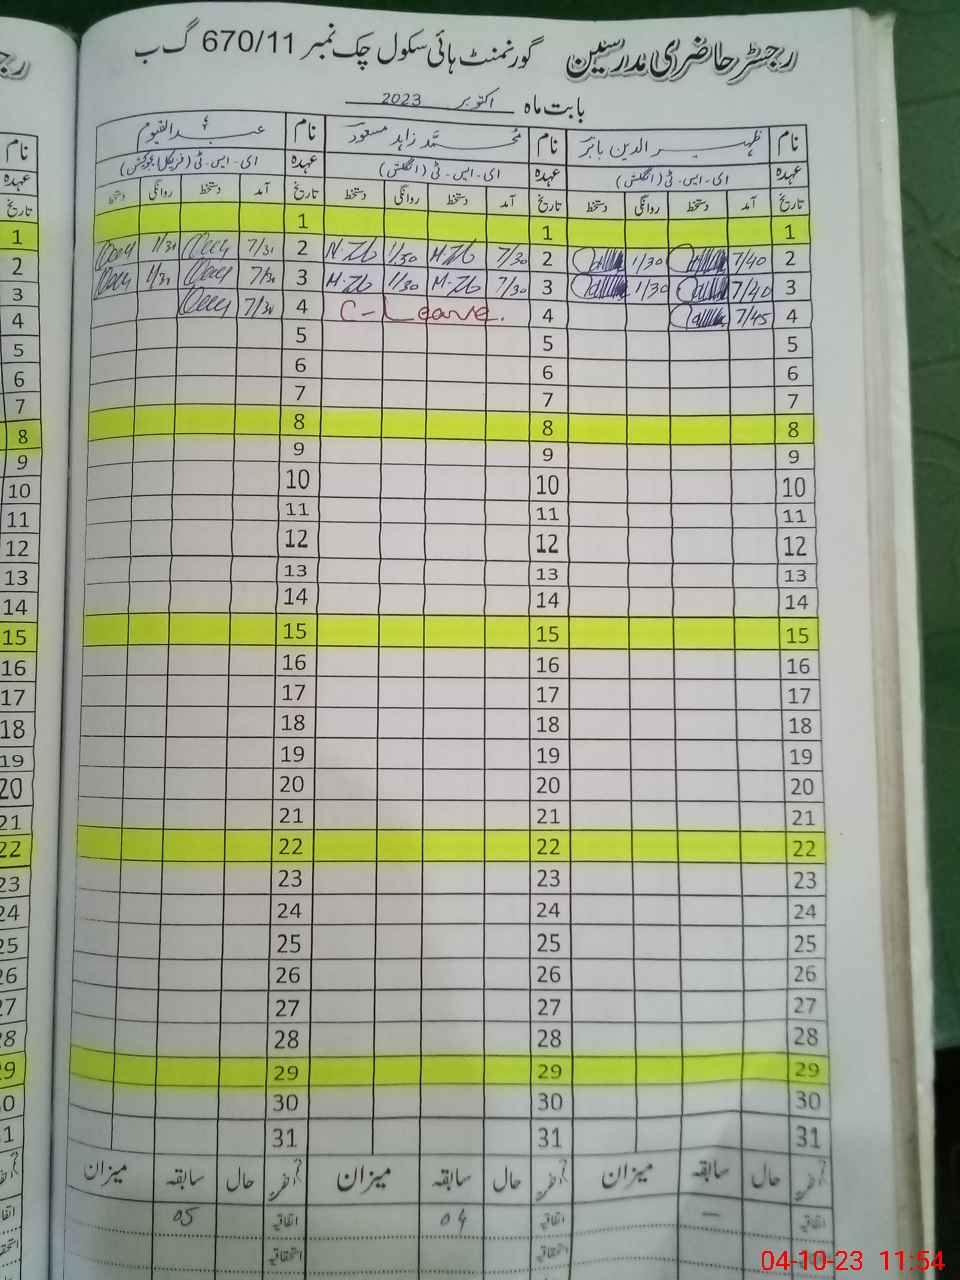 رجسٹر حاضری مدرسین گورنمنٹ ہائی سکول چک نمبر 670/11 گ ب
بابت ماہ اکتوبر 2023
نام ظہیر الدین بابر نام محمد زاہد مسعود نام عبدالقیوم
عہدہ ای-ایس-ٹی (انگلش) عہدہ ای-ایس-ٹی (انگلش) عہدہ ای-ایس-ٹی
تاریخ آمد دستخط روانگی دستخط تاریخ آمد دستخط روانگی دستخط تاریخ آمد دستخط روانگی دستخط
1 1 1
2 7/40 1/30 2 7/30 M.Zb 1/30 M.Zb 2 7/31 1/31
3 7/40 1/30 3 7/30 M.Zb 1/30 M.Zb 3 7/31 1/31
4 7/45 4 C-Leave. 4 7/30
5 5 5
6 6 6
7 7 7
8 8 8
9 9 9
10 10 10
11 11 11
12 12 12
13 13 13
14 14 14
15 15 15
16 16 16
17 17 17
18 18 18
19 19 19
20 20 20
21 21 21
22 22 22
23 23 23
24 24 24
25 25 25
26 26 26
27 27 27
28 28 28
29 29 29
30 30 30
31 31 31
حال سابقہ میزان حال سابقہ میزان حال سابقہ میزان
اتفاقیہ — اتفاقیہ 04 اتفاقیہ 05
استحقاقیہ استحقاقیہ استحقاقیہ
04-10-23 11:54